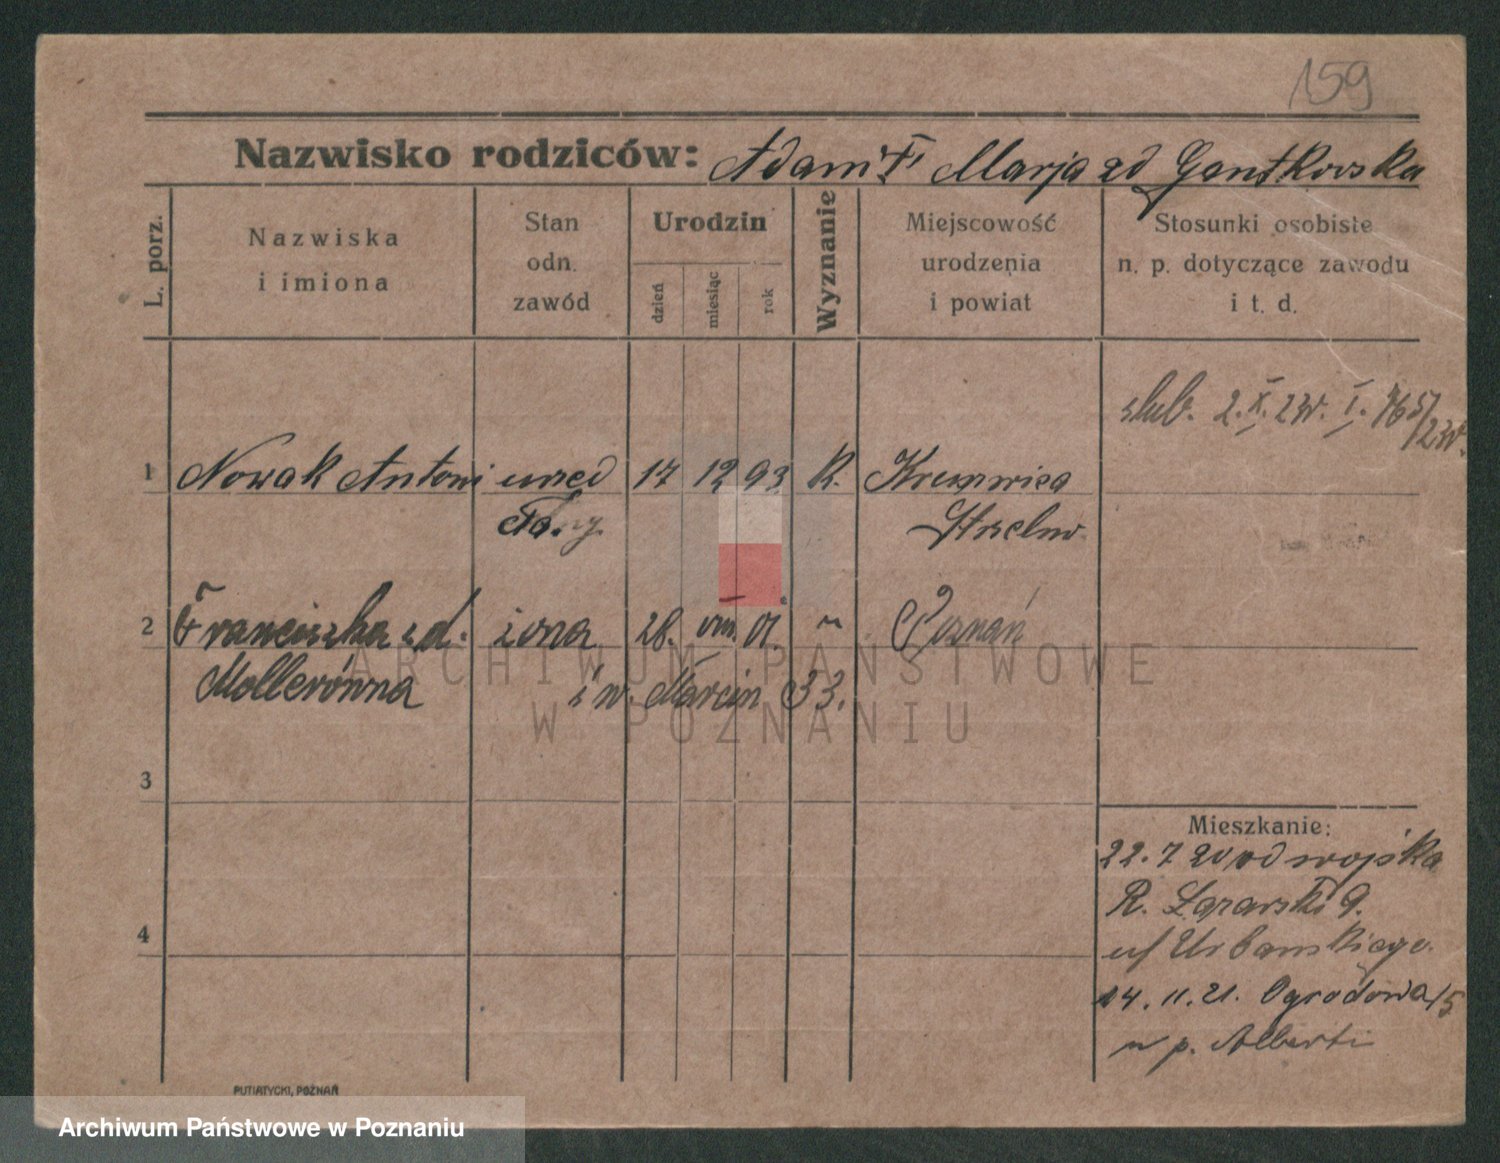 159
Nazwisko rodziców: Adam i Marja zd Gantkowska
L. porz.
Nazwiska
i imiona
Stan
odn.
zawód
Urodzin
dzień
miesiąc
rok
Wyznanie
Miejscowość
urodzenia
i powiat
Stosunki osobiste
n. p. dotyczące zawodu
i t. d.
ślub. 2. X. 23r. I.
1 Nowak Antoni urzed 17 12 93 R. Kruszwica
Strzelno.
2 Franciszka zd. żona 28. VIII. 01. " Poznań
Mollerówna św. Marcin 33.
ARCHIWUM PAŃSTWOWE
W POZNANIU
3
4
Mieszkanie:
22.7 20 od wojska
R. Łazarski 9.
u/ Urbańskiego.
14.11.21. Ogrodowa 15
u p. Alberti
PUTIATYCKI, POZNAŃ
Archiwum Państwowe w Poznaniu